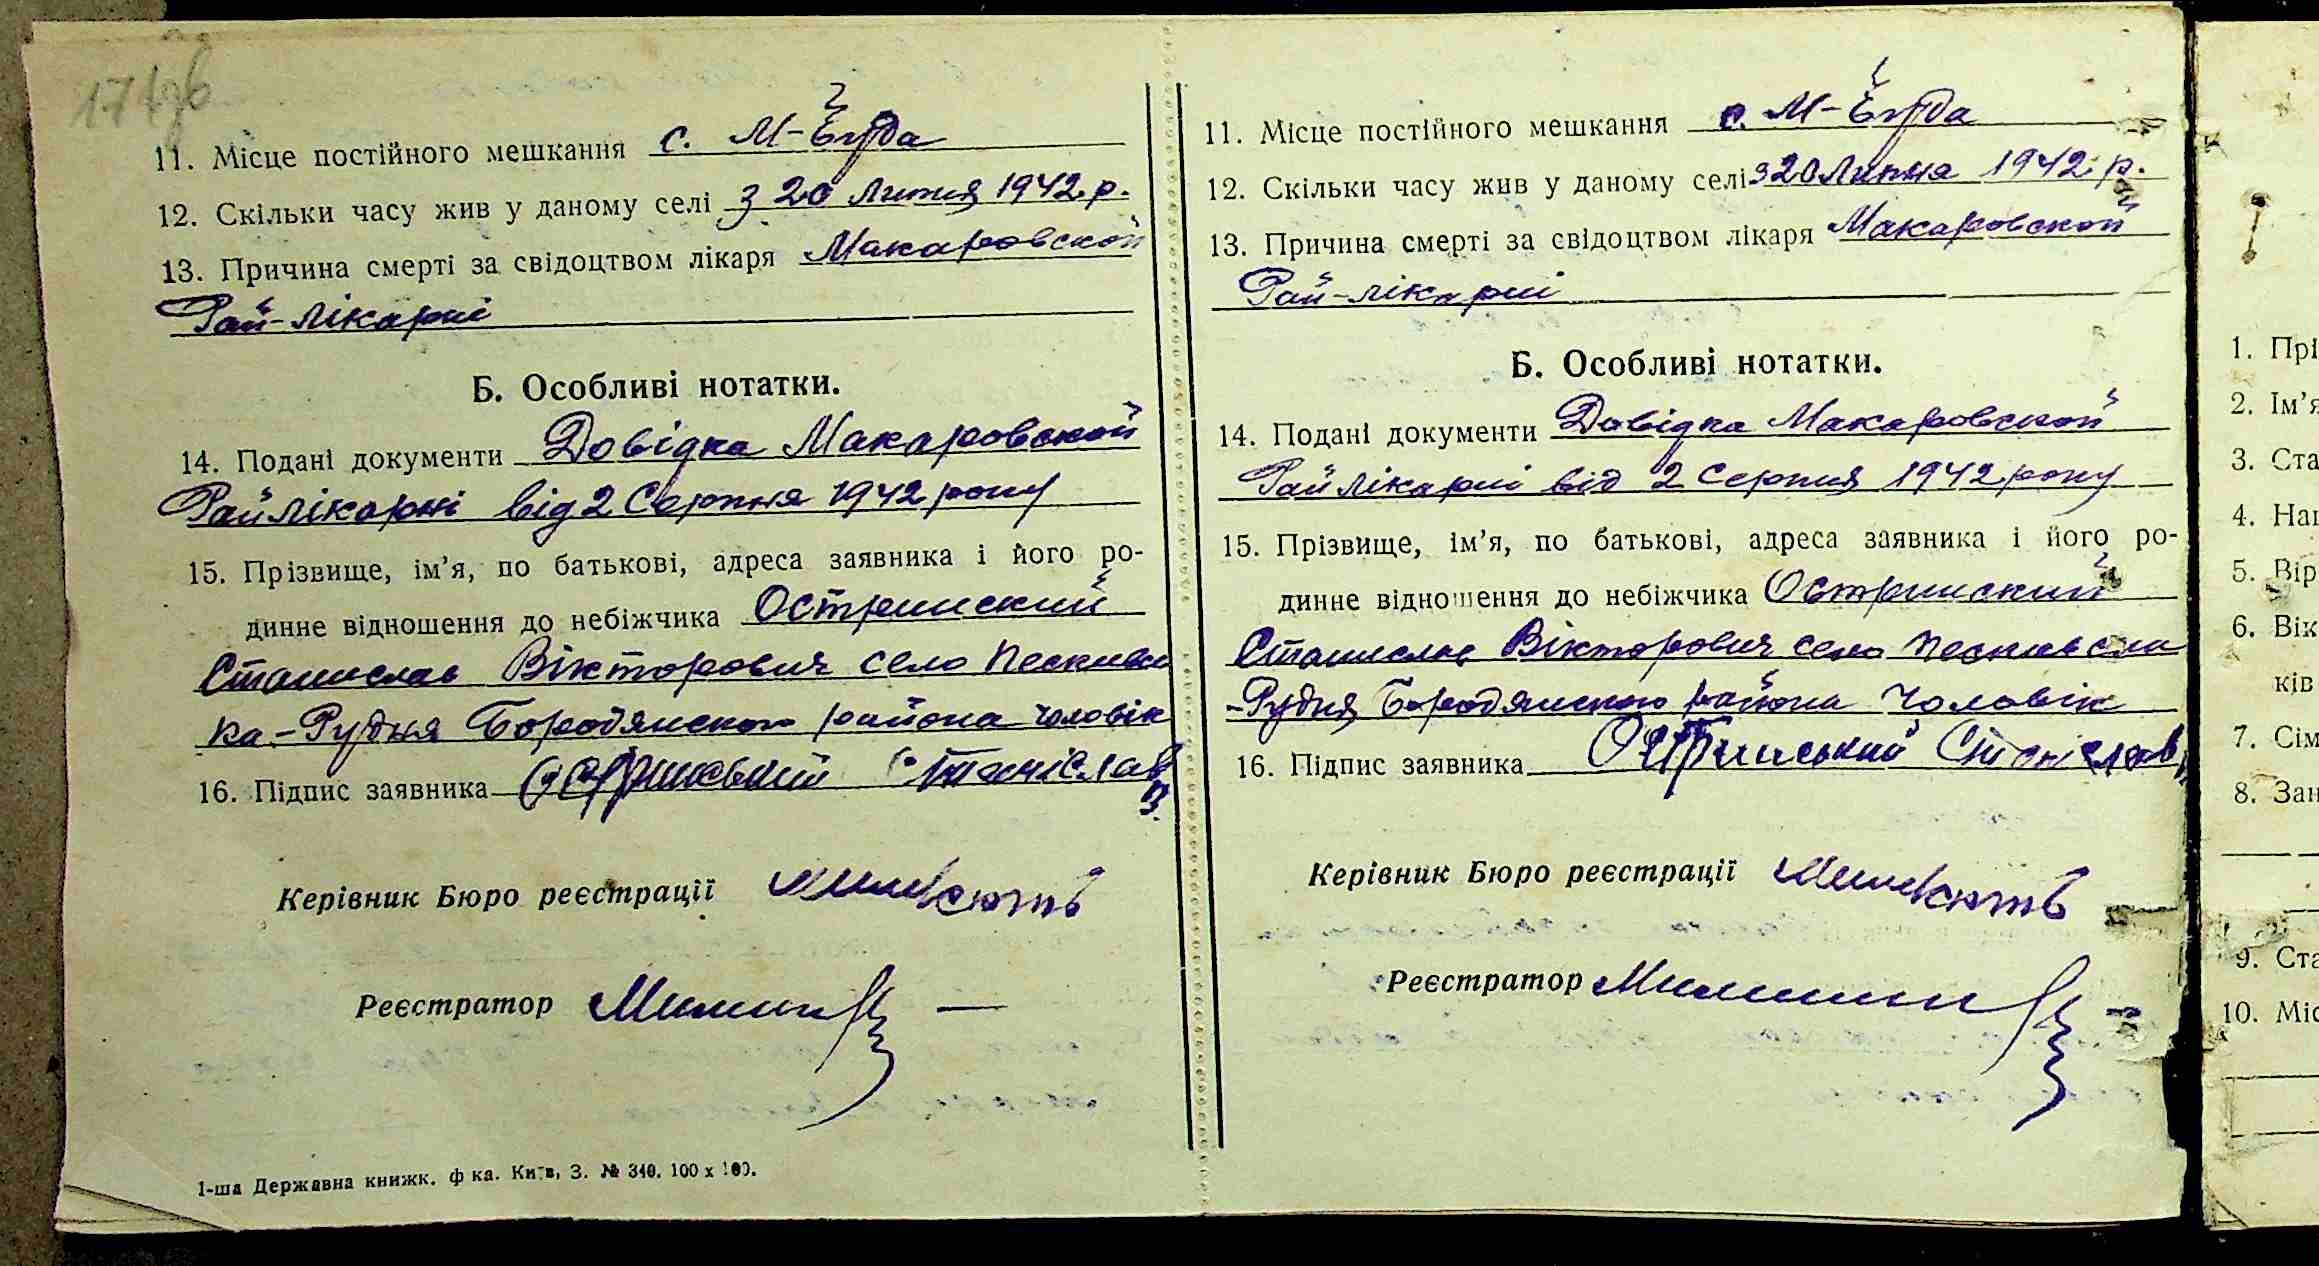 17 зв
11. Місце постійного мешкання с. М-
12. Скільки часу жив у даному селі з 20 Липня 1942 р.
13. Причина смерті за свідоцтвом лікаря Макаровской
Рай-лікарні
Б. Особливі нотатки.
14. Подані документи Довідка Макаровской
Райлікарні від 2 Серпня 1942 року
15. Прізвище, ім’я, по батькові, адреса заявника і його ро-
динне відношення до небіжчика Остринский
Станислав Вікторович село
ка-Рудня Бородянского района чоловік
16. Підпис заявника Остринський Станіслав
В.
Керівник Бюро реєстрації
Реєстратор
1-ша Державна книжк. ф ка. Київ, З. № 340. 100 х 100.
11. Місце постійного мешкання с. М-
12. Скільки часу жив у даному селі з 20 Липня 1942 р.
13. Причина смерті за свідоцтвом лікаря Макаровской
Рай-лікарні
Б. Особливі нотатки.
14. Подані документи Довідка Макаровской
Райлікарні від 2 Серпня 1942 року
15. Прізвище, ім’я, по батькові, адреса заявника і його ро-
динне відношення до небіжчика Остринский
Станислав Вікторович село
-Рудня Бородянского района Чоловік
16. Підпис заявника Остринський Станіслав
Керівник Бюро реєстрації
Реєстратор
1. Прі
2. Ім’я
3. Ста
4. Нац
5. Вір
6. Вік
ків
7. Сім
8. Зан
9. Ста
10. Міс